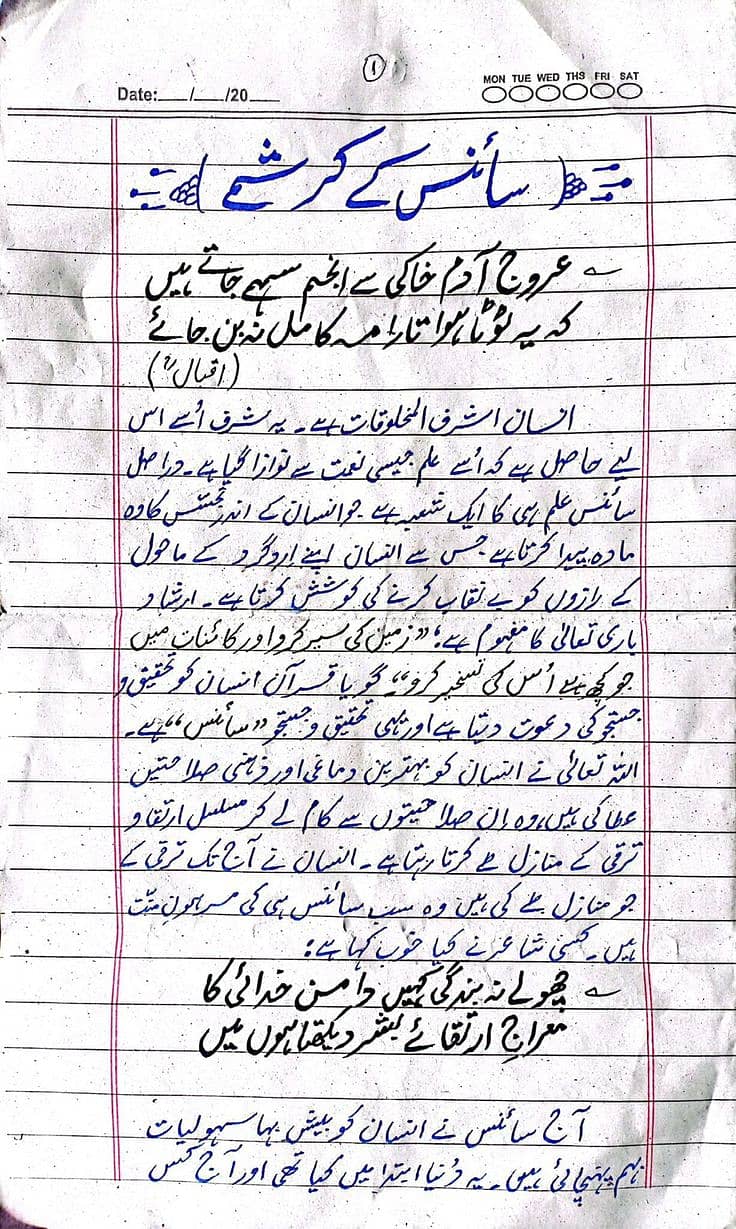 ۱
Date:___/___/20___
MON TUE WED THS FRI SAT
سائنس کے کرشمے
عروجِ آدمِ خاکی سے انجم سہمے جاتے ہیں
کہ یہ ٹوٹا ہوا تارا مہ کامل نہ بن جائے
(اقبالؒ)
انسان اشرف المخلوقات ہے۔ یہ شرف اُسے اس
لیے حاصل ہے کہ اُسے علم جیسی نعمت سے نوازا گیا ہے۔ دراصل
سائنس علم ہی کا ایک شعبہ ہے جو انسان کے اندر تجسّس کا وہ
مادہ پیدا کرتا ہے جس سے انسان اپنے اردگرد کے ماحول
کے رازوں کو بے نقاب کرنے کی کوشش کرتا ہے۔ ارشادِ
باری تعالیٰ کا مفہوم ہے: "زمین کی سیر کرو اور کائنات میں
جو کچھ ہے اُس کی تسخیر کرو"۔ گویا قرآن انسان کو تحقیق و
جستجو کی دعوت دیتا ہے اور یہی تحقیق و جستجو "سائنس" ہے۔
اللہ تعالیٰ نے انسان کو بہترین دماغی اور ذہنی صلاحتیں
عطا کی ہیں، وہ اِن صلاحیتوں سے کام لے کر مسلسل ارتقا و
ترقی کے منازل طے کرتا رہتا ہے۔ انسان نے آج تک ترقی کے
جو منازل طے کی ہیں وہ سب سائنس ہی کی مرہونِ منّت
ہیں۔ کسی شاعر نے کیا خوب کہا ہے:
چھولے نہ بندگی کہیں دامن خدائی کا
معراجِ ارتقائے بشر دیکھتا ہوں میں
آج سائنس نے انسان کو بیش بہا سہولیات
بہم پہنچائی ہیں۔ یہ دُنیا ابتدا میں کیا تھی اور آج کس